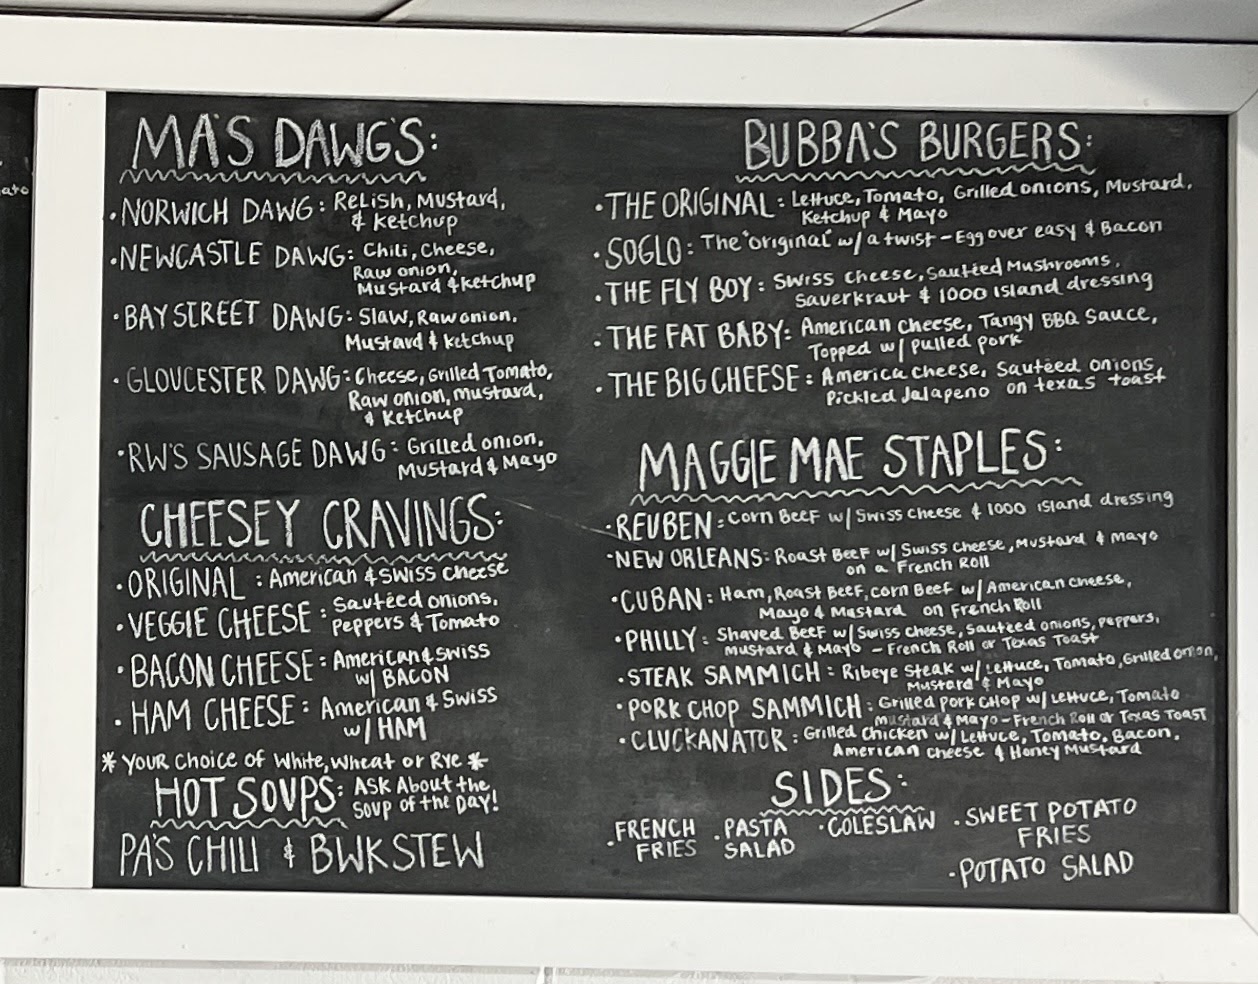 ato
MA'S DAWG'S:
• NORWICH DAWG: Relish, Mustard,
& Ketchup
• NEWCASTLE DAWG: Chili, Cheese,
Raw onion,
Mustard & Ketchup
• BAY STREET DAWG: Slaw, Raw onion,
Mustard & Ketchup
• GLOUCESTER DAWG: Cheese, Grilled Tomato,
Raw onion, Mustard,
& Ketchup
• RW'S SAUSAGE DAWG: Grilled onion,
Mustard & Mayo
CHEESEY CRAVINGS:
• ORIGINAL: American & Swiss Cheese
• VEGGIE CHEESE: Sautéed onions,
Peppers & Tomato
• BACON CHEESE: American & Swiss
w/ BACON
• HAM CHEESE: American & Swiss
w/ HAM
* Your choice of White, Wheat or Rye *
HOT SOUPS: Ask About the
Soup of the Day!
PA'S CHILI & BWK STEW
BUBBA'S BURGERS:
• THE ORIGINAL: Lettuce, Tomato, Grilled onions, Mustard,
Ketchup & Mayo
• SOGLO: The "original" w/ a twist - Egg over easy & Bacon
• THE FLY BOY: Swiss cheese, Sautéed Mushrooms,
Sauerkraut & 1000 Island dressing
• THE FAT BABY: American cheese, Tangy BBQ Sauce,
Topped w/ pulled pork
• THE BIG CHEESE: America cheese, Sautéed onions,
Pickled Jalapeno on texas toast
MAGGIE MAE STAPLES:
• REUBEN: Corn Beef w/ Swiss cheese & 1000 island dressing
• NEW ORLEANS: Roast Beef w/ Swiss cheese, Mustard & Mayo
on a French Roll
• CUBAN: Ham, Roast Beef, corn Beef w/ American cheese,
Mayo & Mustard on French Roll
• PHILLY: Shaved Beef w/ Swiss cheese, Sautéed onions, peppers,
Mustard & Mayo - French Roll or Texas Toast
• STEAK SAMMICH: Ribeye Steak w/ Lettuce, Tomato, Grilled onion,
Mustard & Mayo
• PORK CHOP SAMMICH: Grilled pork chop w/ Lettuce, Tomato
mustard & Mayo - French Roll or Texas Toast
• CLUCKANATOR: Grilled Chicken w/ Lettuce, Tomato, Bacon,
American cheese & Honey Mustard
SIDES:
• FRENCH FRIES • PASTA SALAD • COLESLAW • SWEET POTATO FRIES
• POTATO SALAD